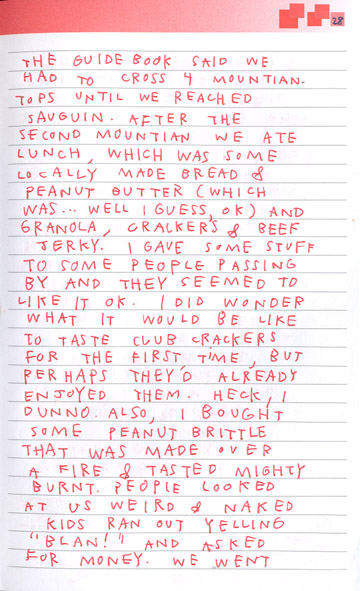 28
THE GUIDE BOOK SAID WE
HAD TO CROSS 4 MOUNTIAN.
TOPS UNTIL WE REACHED
SAUGUIN. AFTER THE
SECOND MOUNTIAN WE ATE
LUNCH, WHICH WAS SOME
LOCALLY MADE BREAD &
PEANUT BUTTER (WHICH
WAS... WELL I GUESS, OK) AND
GRANOLA, CRACKERS & BEEF
JERKY. I GAVE SOME STUFF
TO SOME PEOPLE PASSING
BY AND THEY SEEMED TO
LIKE IT OK. I DID WONDER
WHAT IT WOULD BE LIKE
TO TASTE CLUB CRACKERS
FOR THE FIRST TIME, BUT
PERHAPS THEY'D ALREADY
ENJOYED THEM. HECK, I
DUNNO. ALSO, I BOUGHT
SOME PEANUT BRITTLE
THAT WAS MADE OVER
A FIRE & TASTED MIGHTY
BURNT. PEOPLE LOOKED
AT US WEIRD & NAKED
KIDS RAN OUT YELLING
"BLAN!" AND ASKED
FOR MONEY. WE WENT